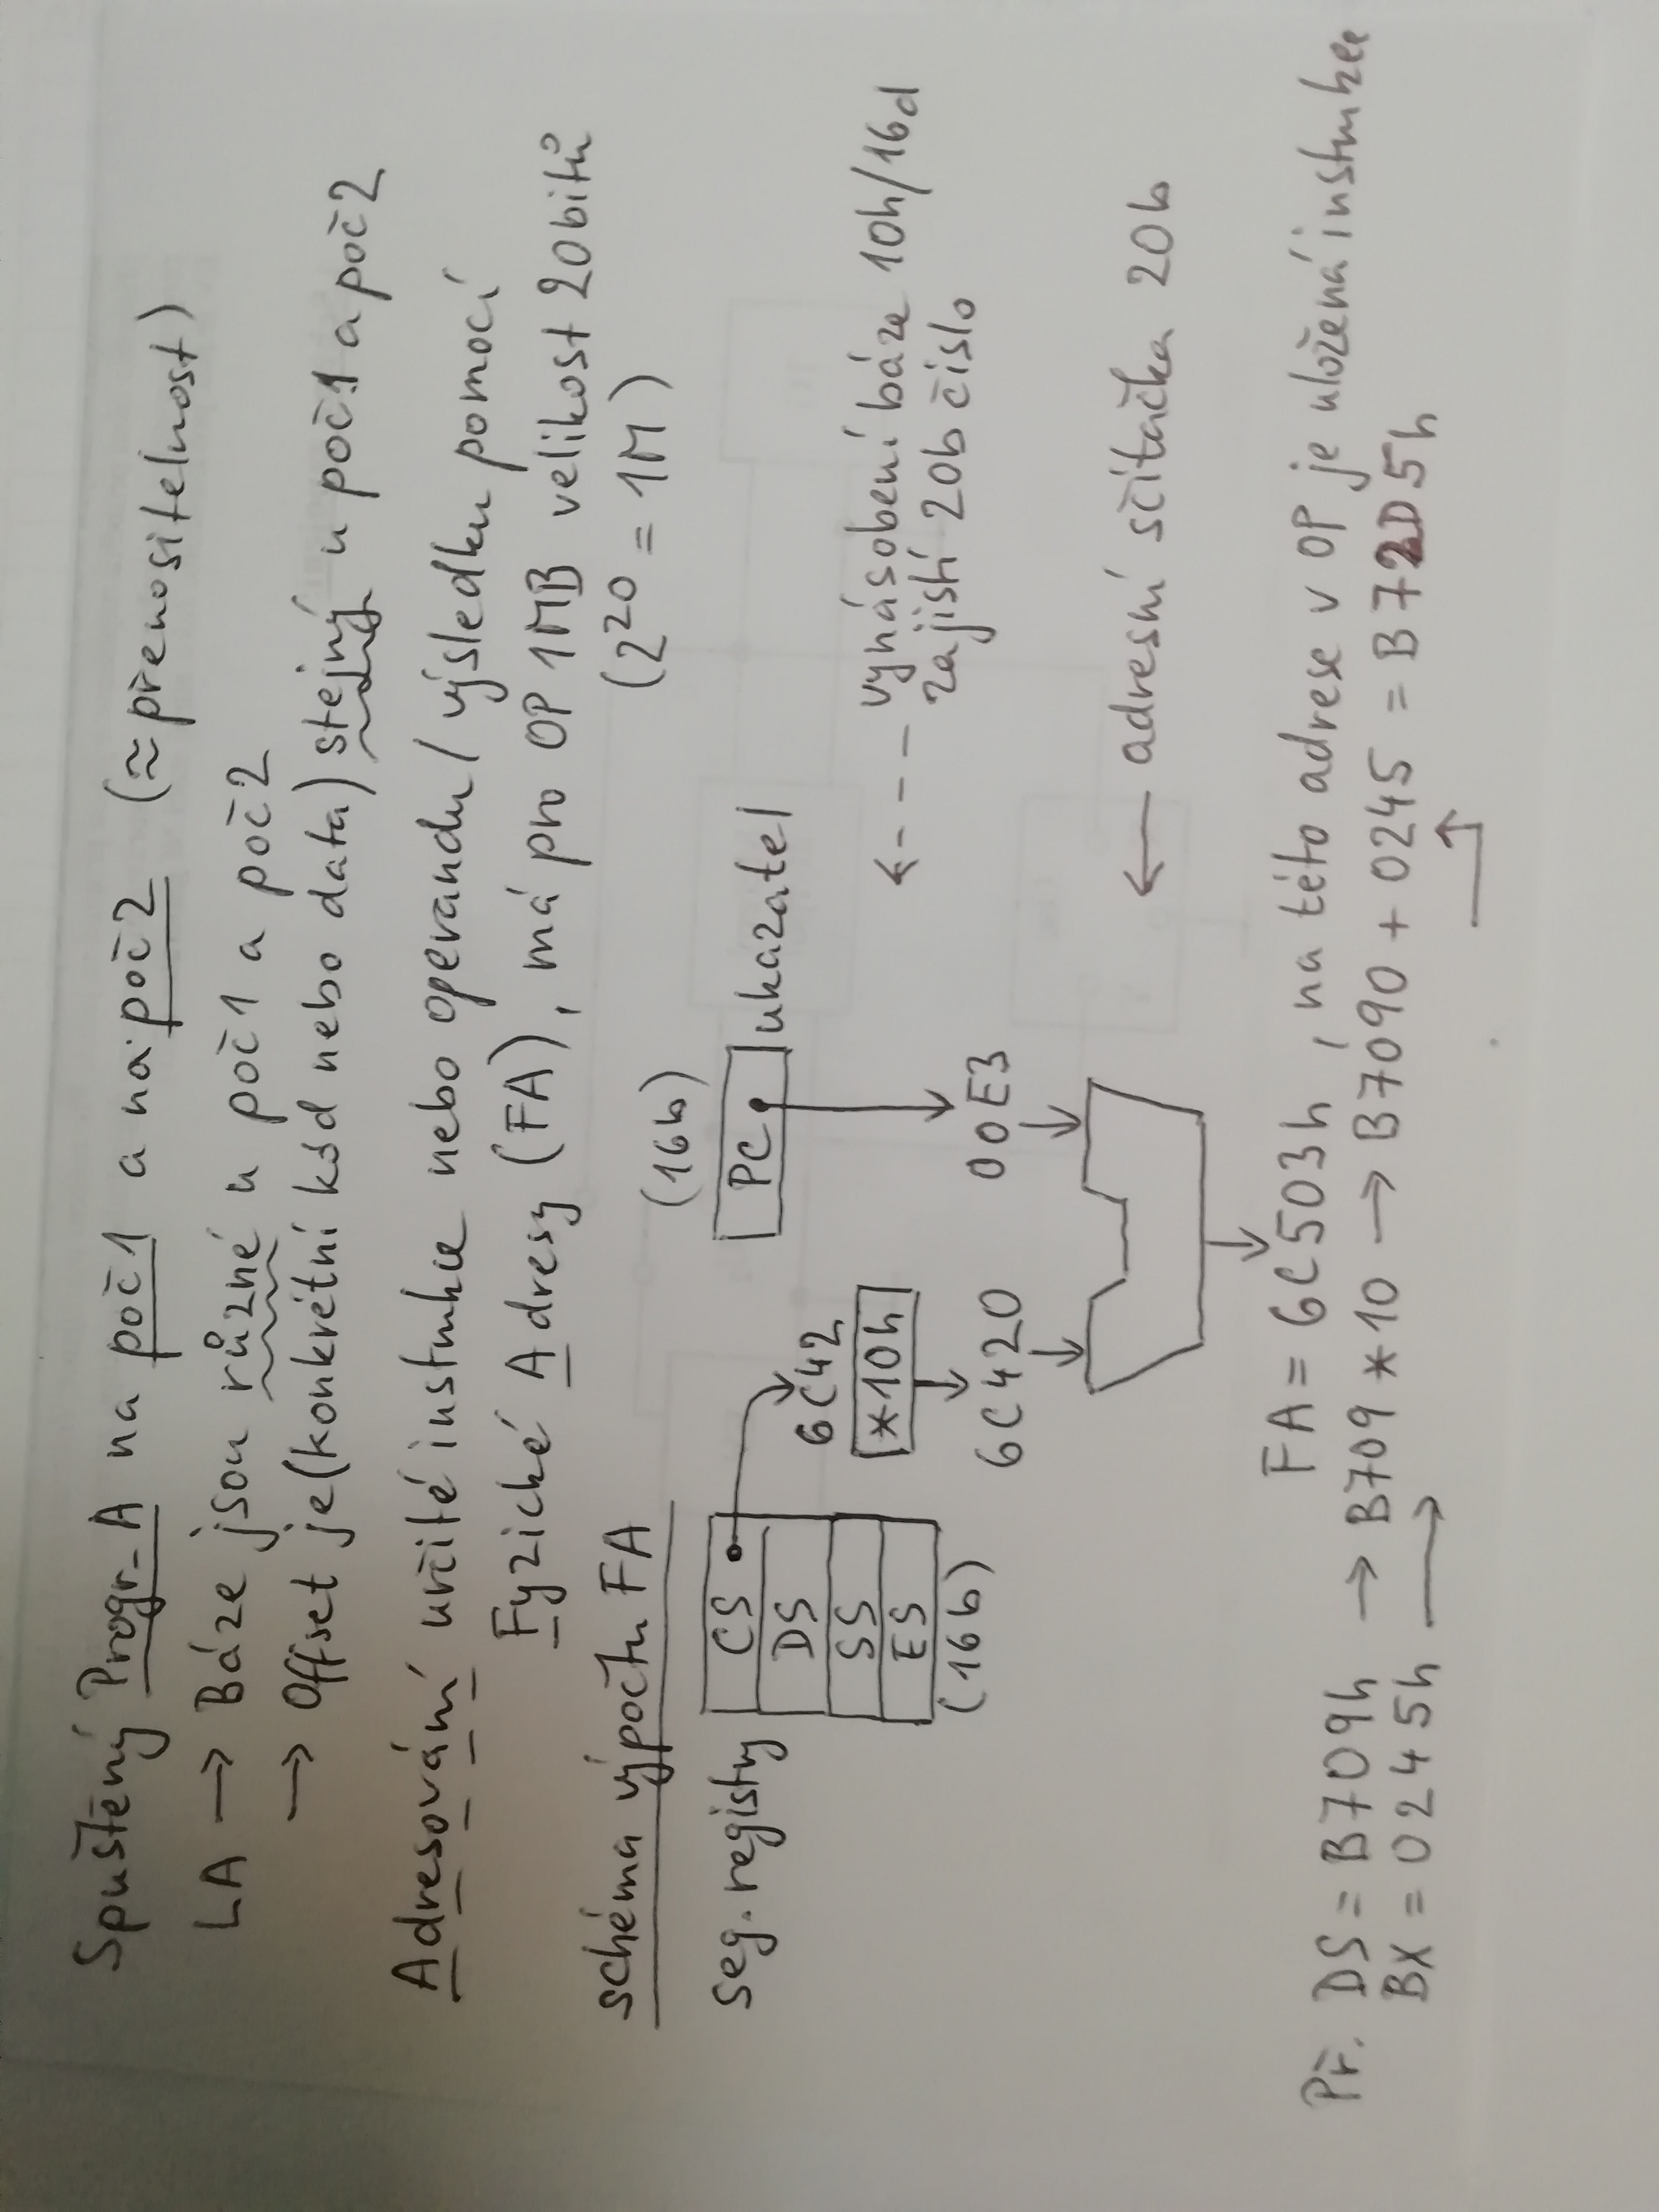 Spuštěný Progr_A na poč1 a na poč2 (≈přenositelnost)
LA → Báze jsou různé u poč1 a poč2
→ Offset je (konkrétní kód nebo data) stejný u poč1 a poč2
Adresování určité instrukce nebo operandu/výsledku pomocí
Fyzické Adresy (FA), má pro OP 1MB velikost 20bitů
(2²⁰ = 1M)
schéma výpočtu FA
(16b)
seg. registry CS
DS
SS
ES
(16b)
6C42
*10h
6C420
PC ukazatel
00E3
←--- vynásobení báze 10h/16d
zajistí 20b číslo
← adresní sčítačka 20b
FA = 6C503h, na této adrese v OP je uložená instrukce
Př. DS = B709h → B709 * 10 → B7090 + 0245 = B72D5h
BX = 0245h →